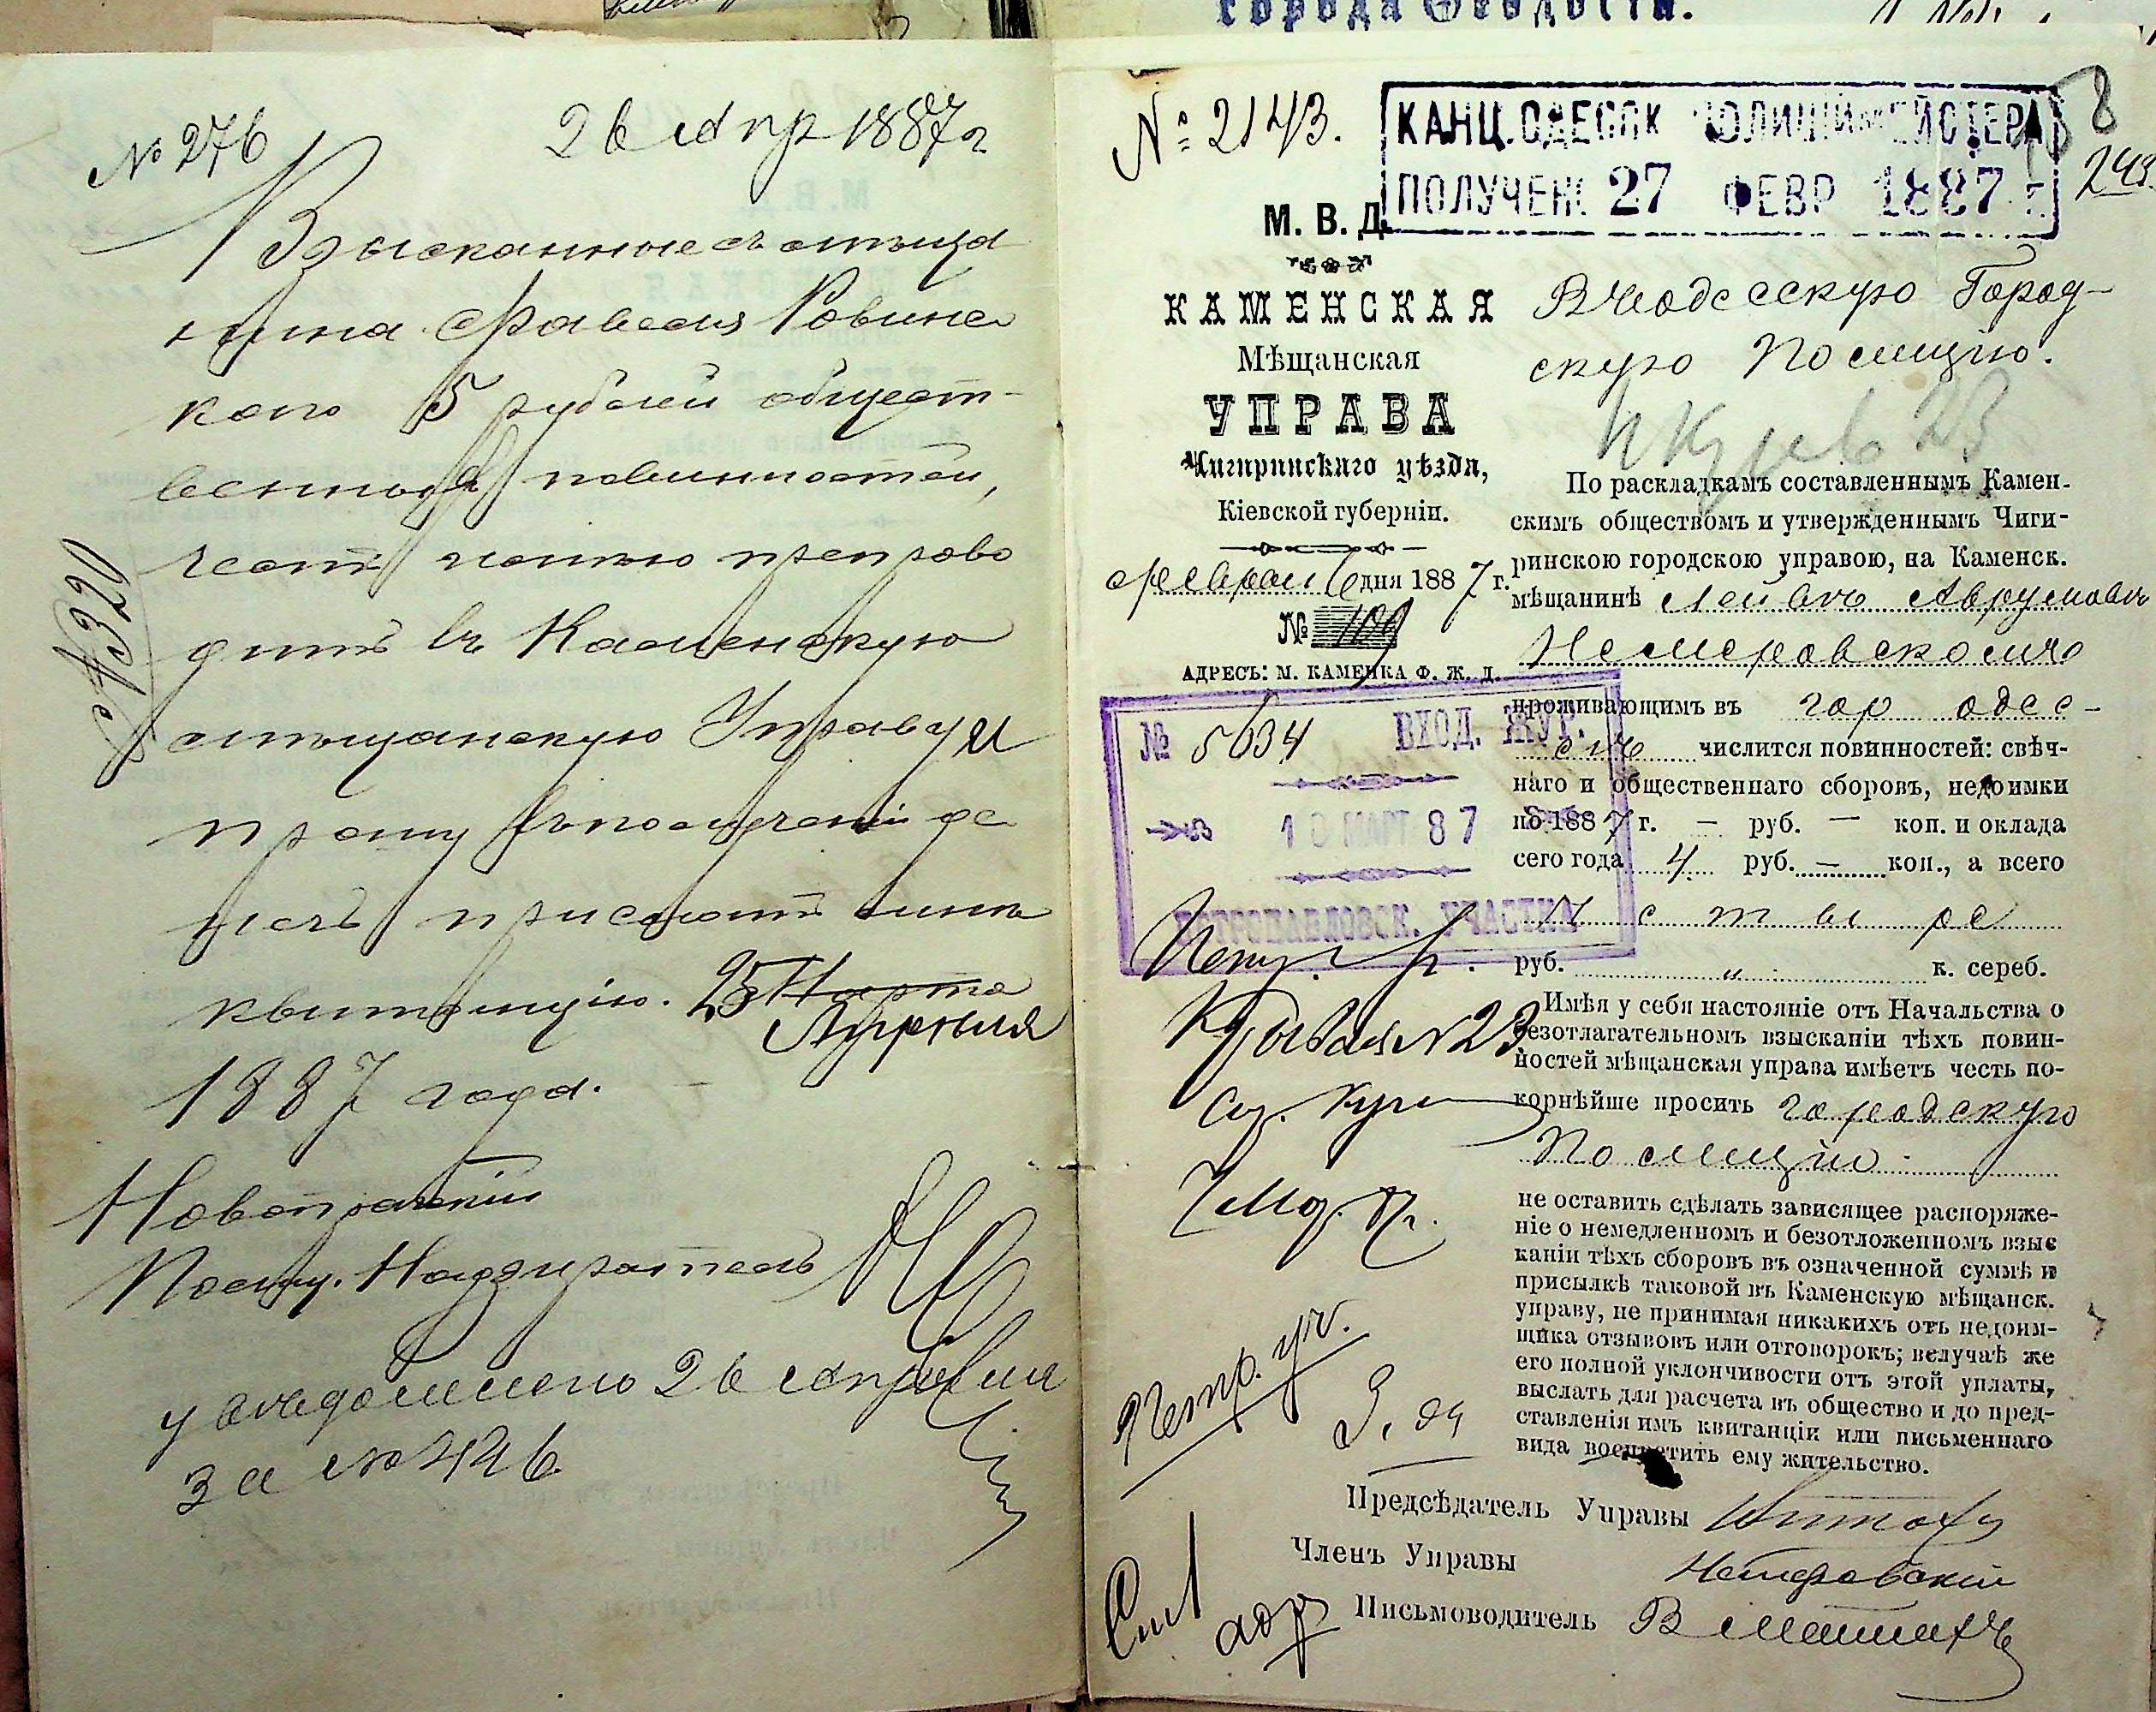 № 276
26 Апр 1887 г
Взысканные съ мѣща
нина Фавеля Ровинс
каго 5 рублей общест-
венныхъ повинностей,
честь имѣю препрово
дить въ Каменскую
мѣщанскую Управу и
прошу въ полученіи де
негъ прислать
квитанцію. 25 Марта
Апрѣля
1887 года.
Полиц. Надзиратель
увѣдомлено 26 Апрѣля
за № 446
№ 320
города Феодосіи.
№ 2143.
КАНЦ. ОДЕССК ПОЛИЦІЙМЕЙСТЕРА
ПОЛУЧЕНО 27 ФЕВР 1887 г.
8
243
М. В. Д.
КАМЕНСКАЯ
Мѣщанская
УПРАВА
Чигиринскаго уѣзда,
Кіевской губерніи.
февраля 6 дня 1887 г.
№ 109
АДРЕСЪ: М. КАМЕНКА Ф. Ж. Д.
№ 5634 ВХОД. ЖУР.
10 МАРТ 87
ПЕТРОПАВЛОВСК. УЧАСТКА
№ 23
Петр. уч.
адр
Въ Одесскую Город-
скую Полицію.
23
По раскладкамъ составленнымъ Камен-
скимъ обществомъ и утвержденнымъ Чиги-
ринскою городскою управою, на Каменск.
мѣщанинѣ Лейбѣ Аврумовѣ
Немеровскомъ
проживающимъ въ гор Одес-
сѣ числится повинностей: свѣч-
наго и общественнаго сборовъ, недоимки
по 1887 г. — руб. — коп. и оклада
сего года 4 руб. — коп., а всего
четыре
руб. „ к. сереб.
Имѣя у себя настояніе отъ Начальства о
безотлагательномъ взысканіи тѣхъ повин-
ностей мѣщанская управа имѣетъ честь по-
корнѣйше просить городскую
Полицію
не оставить сдѣлать зависящее распоряже-
ніе о немедленномъ и безотложенномъ взыс
каніи тѣхъ сборовъ въ означенной суммѣ и
присылкѣ таковой въ Каменскую мѣщанск.
управу, не принимая никакихъ отъ недоим-
щика отзывовъ или отговорокъ; вслучаѣ же
его полной уклончивости отъ этой уплаты,
выслать для расчета въ общество и до пред-
ставленія имъ квитанціи или письменнаго
вида воспретить ему жительство.
Предсѣдатель Управы
Членъ Управы Немеровскій
Письмоводитель